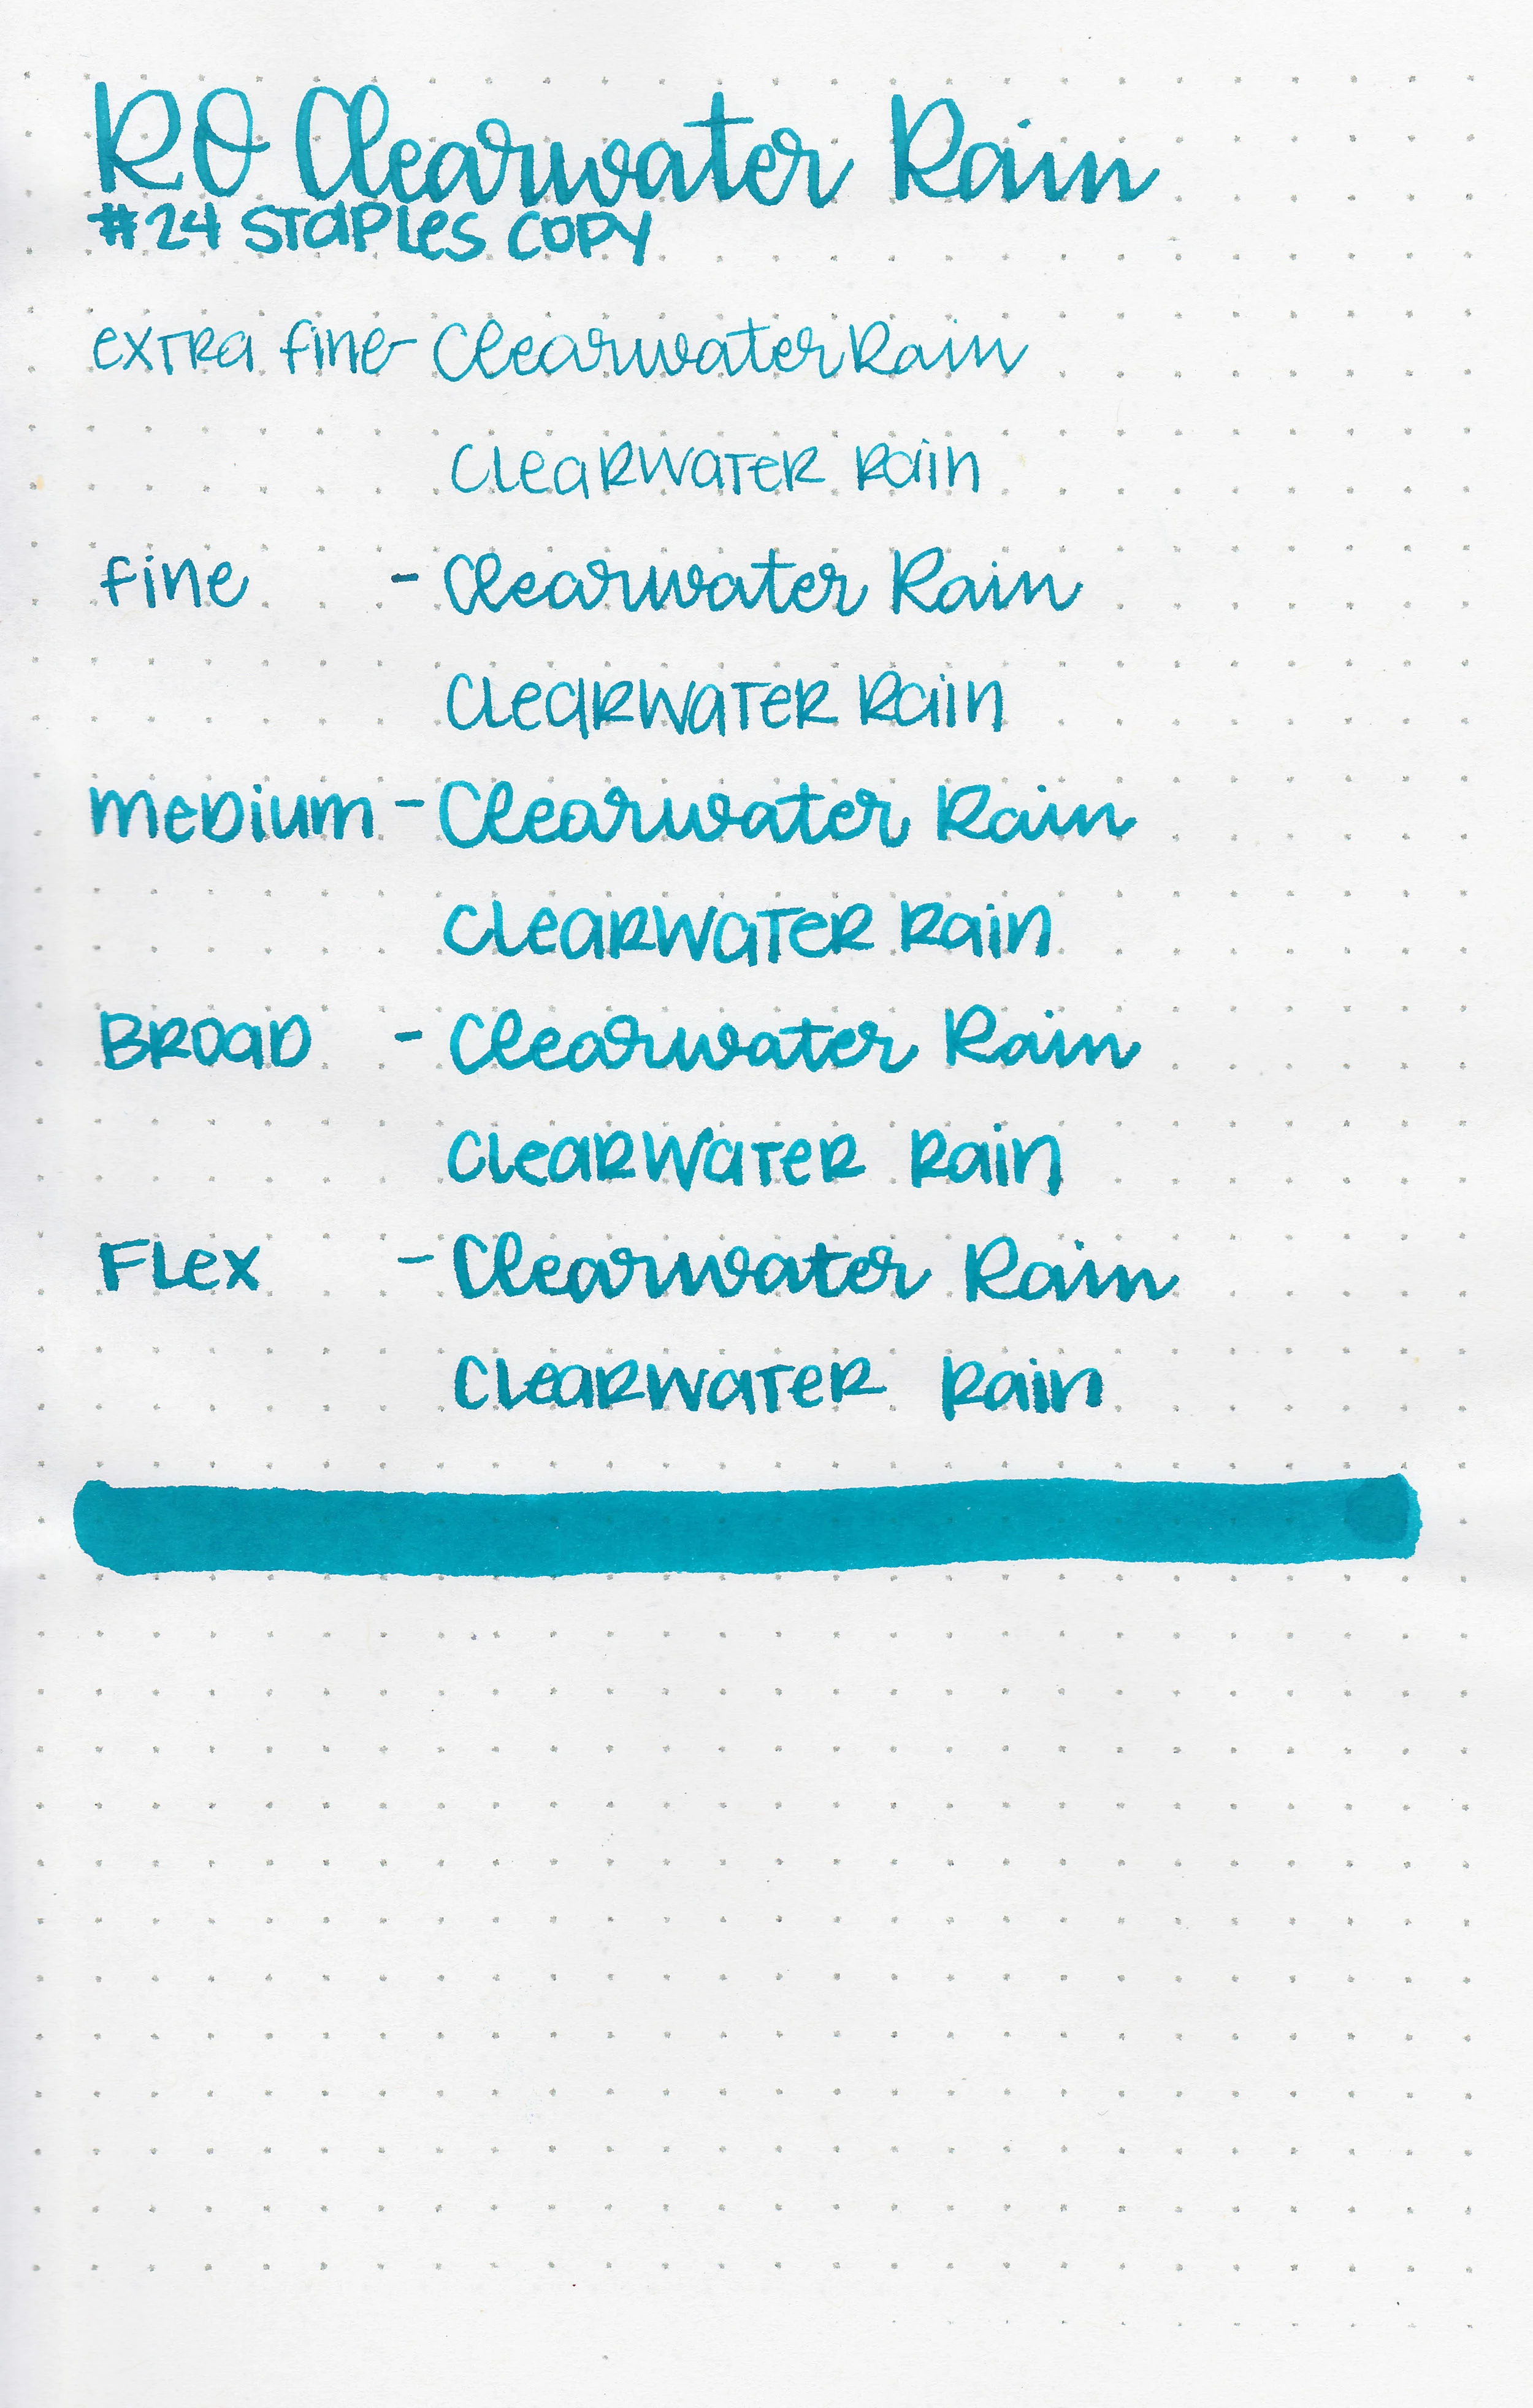 RO Clearwater Rain
#24 Staples Copy
extra fine - Clearwater Rain
Clearwater Rain
fine - Clearwater Rain
Clearwater Rain
medium - Clearwater Rain
Clearwater Rain
Broad - Clearwater Rain
Clearwater Rain
Flex - Clearwater Rain
Clearwater Rain